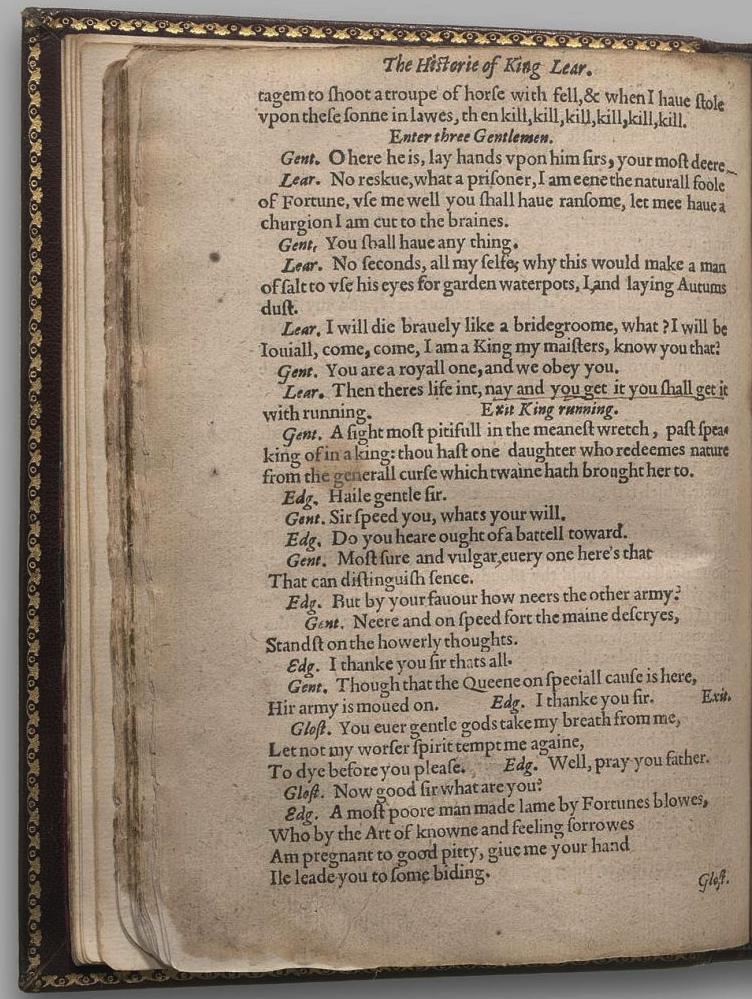 The Hiſtorie of King Lear.
tagem to ſhoot a troupe of horſe with fell,& when I haue ſtole
vpon theſe ſonne in lawes, then kill,kill,kill,kill,kill,kill.
Enter three Gentlemen.
Gent. O here he is, lay hands vpon him ſirs, your moſt deere
Lear. No reskue,what a priſoner,I am eene the naturall foole
of Fortune, vſe me well you ſhall haue ranſome, let mee haue a
churgion I am cut to the braines.
Gent, You ſhall haue any thing.
Lear. No ſeconds, all my ſelfe; why this would make a man
of ſalt to vſe his eyes for garden waterpots, I,and laying Autums
duſt.
Lear. I will die brauely like a bridegroome, what ? I will be
Iouiall, come, come, I am a King my maiſters, know you that?
Gent. You are a royall one,and we obey you.
Lear. Then theres life int, nay and you get it you ſhall get it
with running. Exit King running.
Gent. A ſight moſt pitifull in the meaneſt wretch, paſt ſpea-
king of in a king: thou haſt one daughter who redeemes nature
from the generall curſe which twaine hath brought her to.
Edg. Haile gentle ſir.
Gent. Sir ſpeed you, whats your will.
Edg. Do you heare ought of a battell toward.
Gent. Moſt ſure and vulgar,euery one here's that
That can diſtinguiſh ſence.
Edg. But by your fauour how neers the other army?
Gent. Neere and on ſpeed fort the maine deſcryes,
Standſt on the howerly thoughts.
Edg. I thanke you ſir thats all.
Gent. Though that the Queene on ſpeciall cauſe is here,
Hir army is moued on. Edg. I thanke you ſir. Exit.
Gloſt. You euer gentle gods take my breath from me,
Let not my worſer ſpirit tempt me againe,
To dye before you pleaſe. Edg. Well, pray you father.
Gloſt. Now good ſir what are you?
Edg. A moſt poore man made lame by Fortunes blowes,
Who by the Art of knowne and feeling ſorrowes
Am pregnant to good pitty, giue me your hand
Ile leade you to ſome biding.
Gloſt.